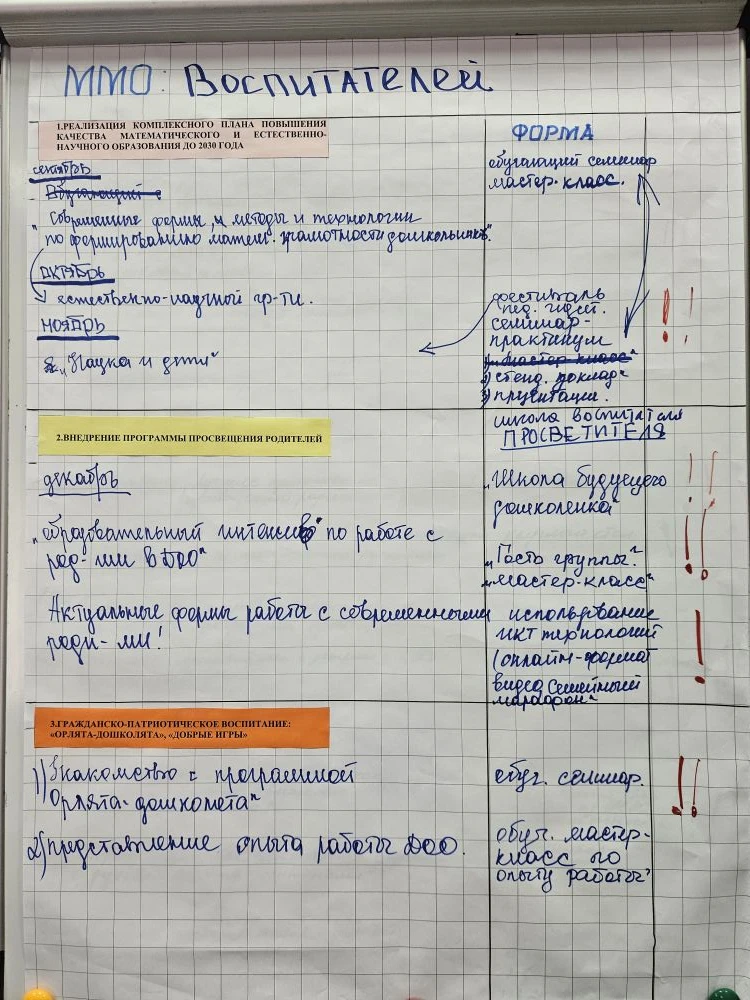 ММО: ВОСПИТАТЕЛЕЙ
1.РЕАЛИЗАЦИЯ КОМПЛЕКСНОГО ПЛАНА ПОВЫШЕНИЯ
КАЧЕСТВА МАТЕМАТИЧЕСКОГО И ЕСТЕСТВЕННО-
НАУЧНОГО ОБРАЗОВАНИЯ ДО 2030 ГОДА
ФОРМА
обучающий семинар
мастер-класс.
сентябрь
Обучающий с
„Современные формы, и методы и технологии
по формированию матем. грамотности дошкольников".
октябрь
естественно-научной гр-ти.
ноябрь
„Наука и дети"
фестиваль
пед. идей.
семинар-
практикум
„мастер-класс"
стенд. доклад"
презентации.
2.ВНЕДРЕНИЕ ПРОГРАММЫ ПРОСВЕЩЕНИЯ РОДИТЕЛЕЙ
школа воспитателя
ПРОСВЕТИТЕЛЯ
декабрь
„образовательный интенсив" по работе с
род-ми в ДОО"
„Школа будущего
дошколенка"
„Гость группы".
„мастер-класс"
Актуальные формы работы с современными
роди-ми!
использование
ИКТ технологий
(онлайн-формат
видео семейный
марафон"
3.ГРАЖДАНСКО-ПАТРИОТИЧЕСКОЕ ВОСПИТАНИЕ:
«ОРЛЯТА-ДОШКОЛЯТА», «ДОБРЫЕ ИГРЫ»
1) Знакомство с программой
Орлята-дошколята"
обуч. семинар.
2) представление опыта работы ДОО.
обуч. мастер-
класс по
опыту работы"